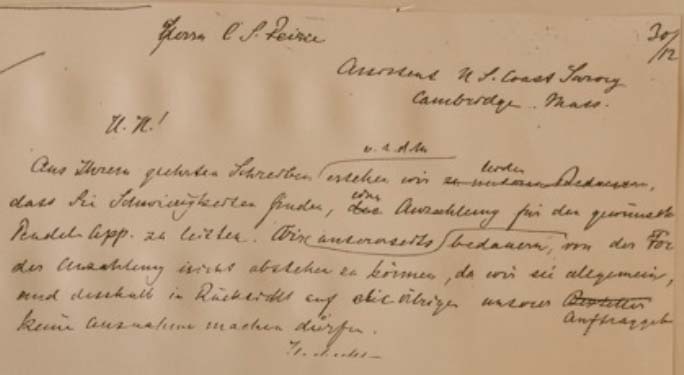 Herrn C S. Peirce
30/12
Assistent U S. Coast Survey
Cambridge. Mass.
u. s. d. M.
Aus Ihrem geehrten Schreiben ersehen wir zu unserem Bedauern,
leider
dass Sie Schwierigkeiten finden, eine Anzahlung für den gewünscht
Pendel App. zu leisten. Wir unsererseits bedauern, von der For
der Anzahlung nicht abstehen zu können, da wir sie allgemein,
und deshalb in Rücksicht auf die übrigen unserer Besteller
Auftraggeb
keine Ausnahme machen dürfen.